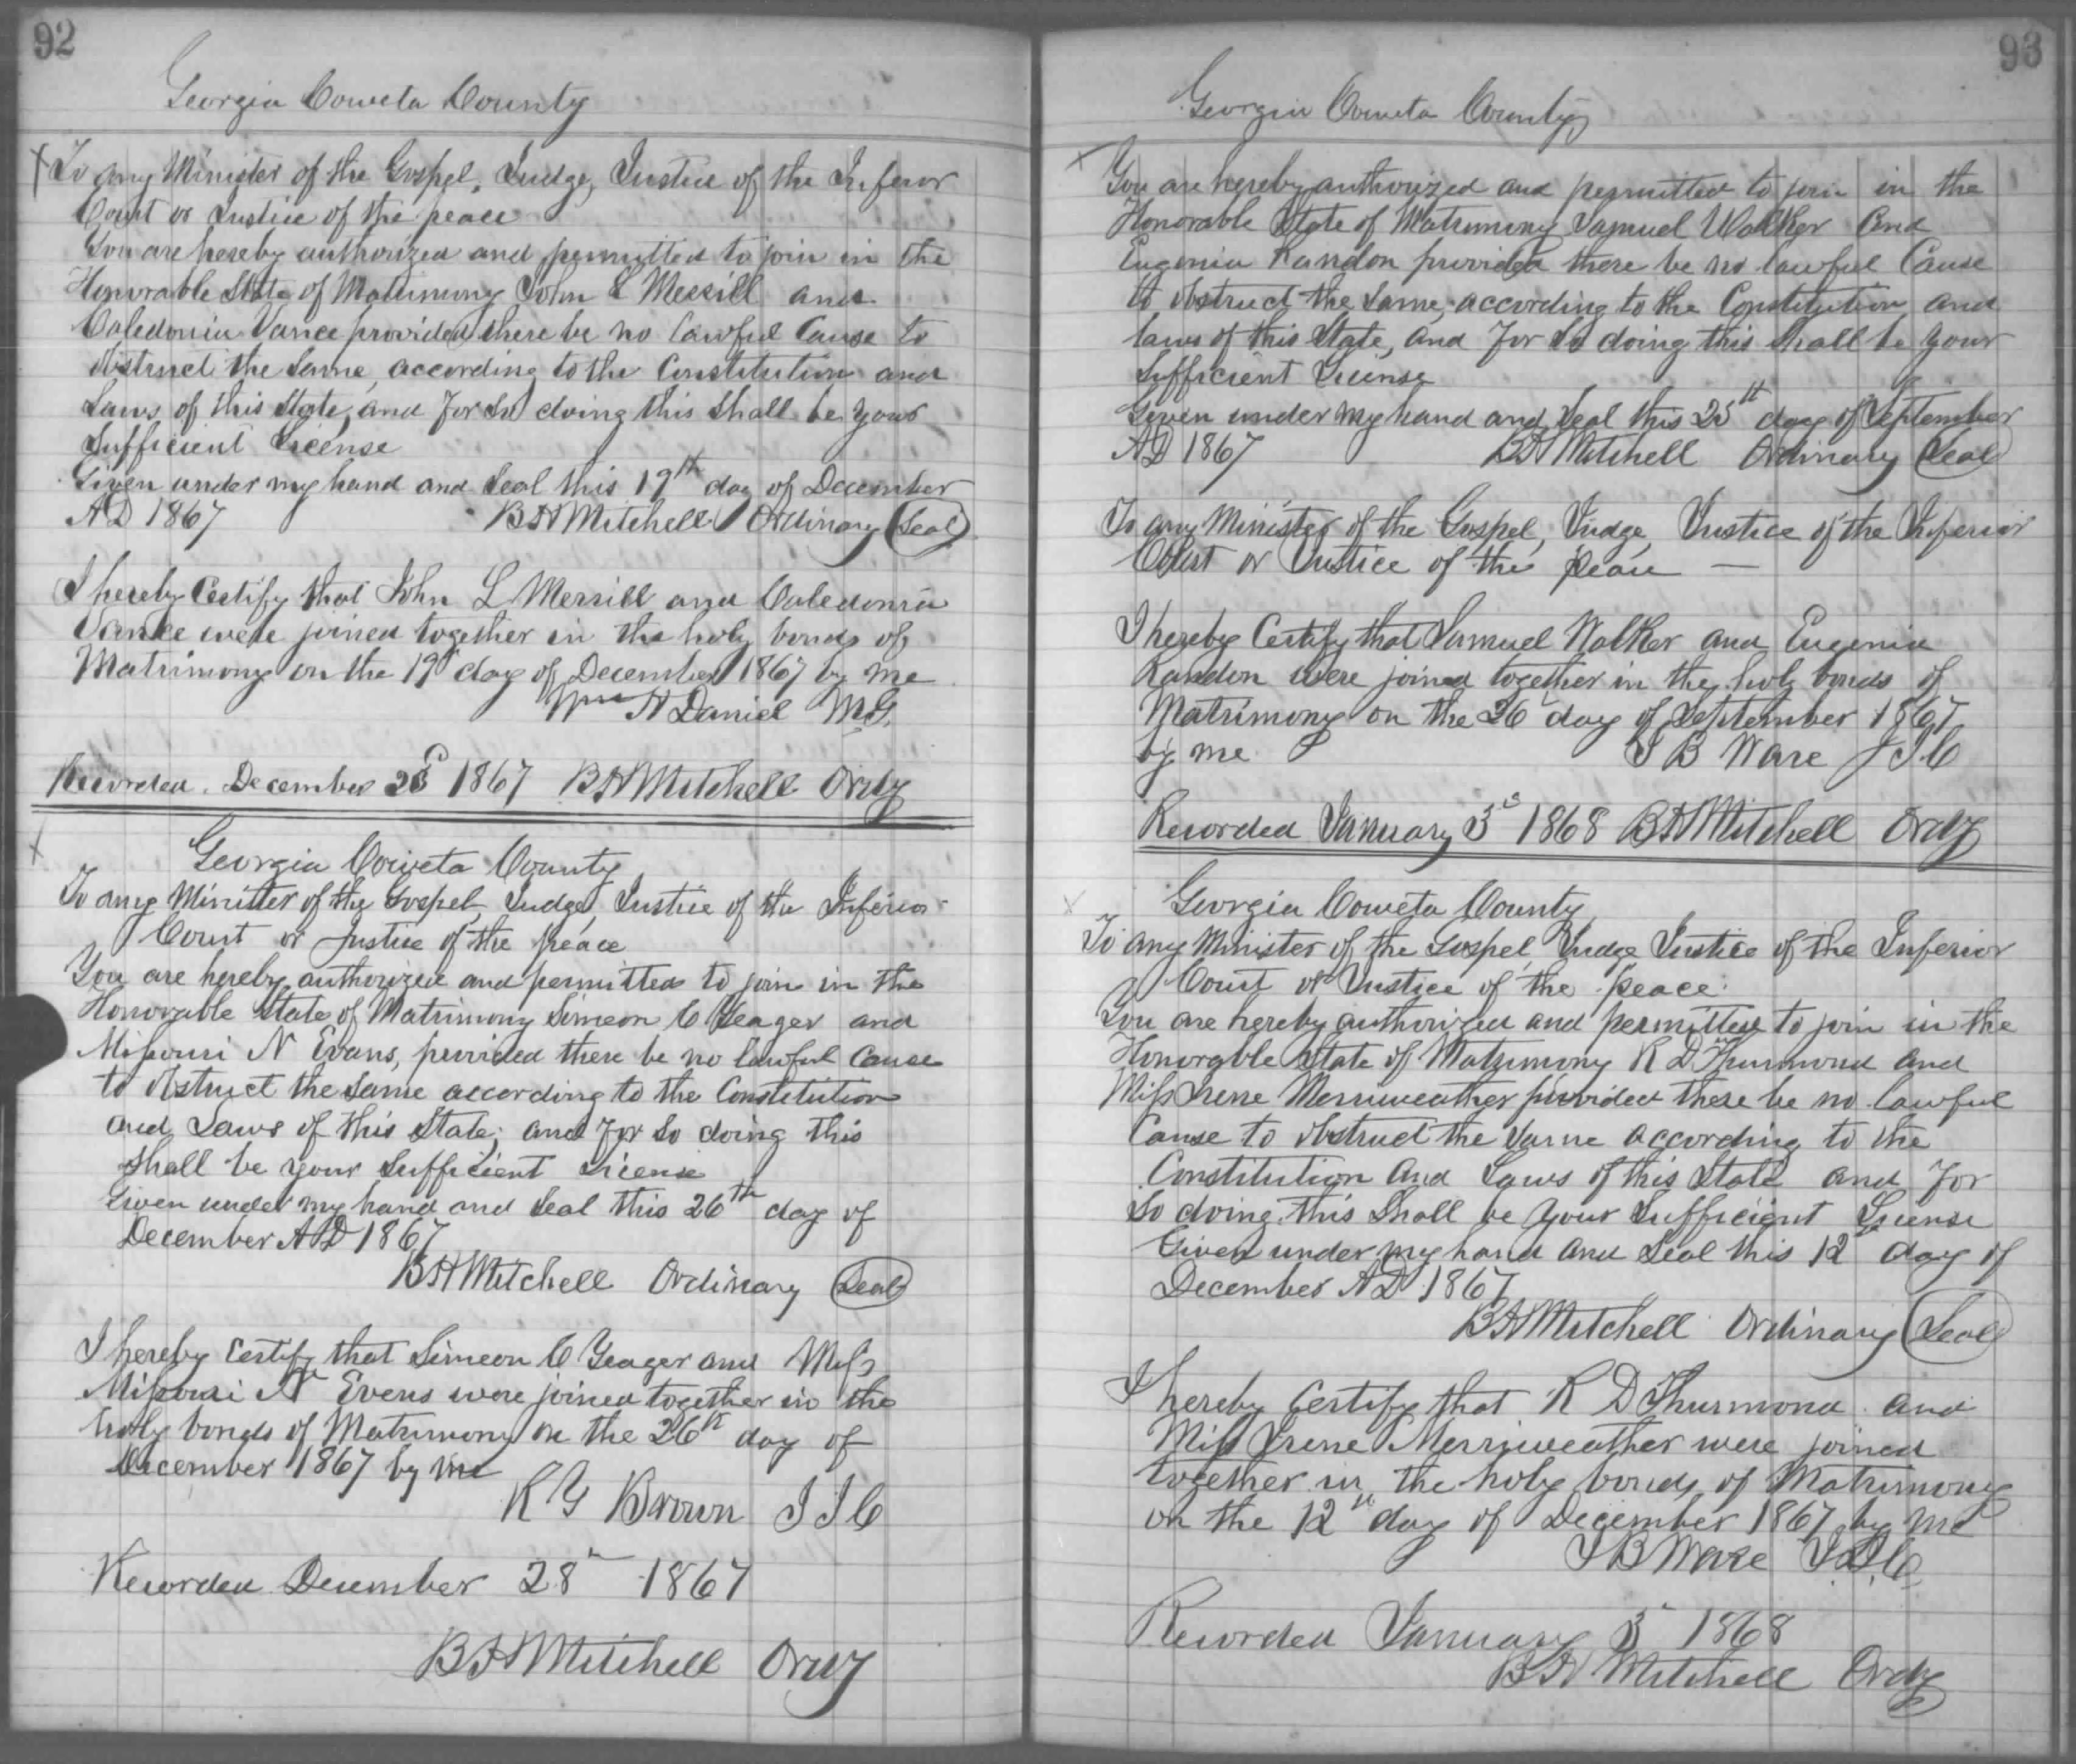 92
Georgia Coweta County
To any Minister of the Gospel, Judge, Justice of the Inferior
Court or Justice of the peace
You are hereby authorized and permitted to join in the
Honorable State of Matrimony John L Merrill and
Caledonia Vance provided there be no lawful Cause to
obstruct the same, according to the Constitution and
Laws of this State, and for so doing this shall be your
Sufficient License
Given under my hand and Seal this 19th day of December
AD 1867 BH Mitchell Ordinary (Seal)
I hereby Certify that John L Merrill and Caledonia
Vance were joined together in the holy bonds of
Matrimony on the 19th day of December 1867 by me
Wm H Daniel M.G.
Recorded December 23d 1867 BH Mitchell Ordy
Georgia Coweta County
To any Minister of the Gospel, Judge, Justice of the Inferior
Court or Justice of the peace
You are hereby authorized and permitted to join in the
Honorable State of Matrimony Simeon C Yeager and
Missouri N Evans, provided there be no lawful Cause
to obstruct the same according to the Constitution
and Laws of this State; and for so doing this
shall be your Sufficient License
Given under my hand and Seal this 26th day of
December AD 1867
BH Mitchell Ordinary (Seal)
I hereby Certify that Simeon C Yeager and Miss
Missouri N Evens were joined together in the
holy bonds of Matrimony on the 26th day of
December 1867 by me
R Y Brown J I C
Recorded December 28th 1867
BH Mitchell Ordy
93
Georgia Coweta County
You are hereby authorized and permitted to join in the
Honorable State of Matrimony Samuel Walker and
Eugenia Randon provided there be no lawful Cause
to obstruct the same, according to the Constitution and
laws of this State, and for so doing this shall be your
Sufficient License
Given under my hand and Seal this 25th day of September
AD 1867 BH Mitchell Ordinary (Seal)
To any Minister of the Gospel, Judge, Justice of the Inferior
Court or Justice of the peace —
I hereby Certify that Samuel Walker and Eugenia
Randon were joined together in the holy bonds of
Matrimony on the 26th day of September 1867
by me J B Ware J I C
Recorded January 3d 1868 BH Mitchell Ordy
Georgia Coweta County
To any Minister of the Gospel, Judge Justice of the Inferior
Court or Justice of the peace
You are hereby authorized and permitted to join in the
Honorable State of Matrimony R D Thurmond and
Miss Irene Merriweather provided there be no lawful
Cause to obstruct the same according to the
Constitution and Laws of this State and for
so doing this Shall be your Sufficient License
Given under my hand and Seal this 12th day of
December AD 1867
BH Mitchell Ordinary (Seal)
I hereby Certify that R D Thurmond and
Miss Irene Merriweather were joined
together in the holy bonds of Matrimony
on the 12th day of December 1867 by me
J B Ware J.I.C.
Recorded January 3d 1868
BH Mitchell Ordy